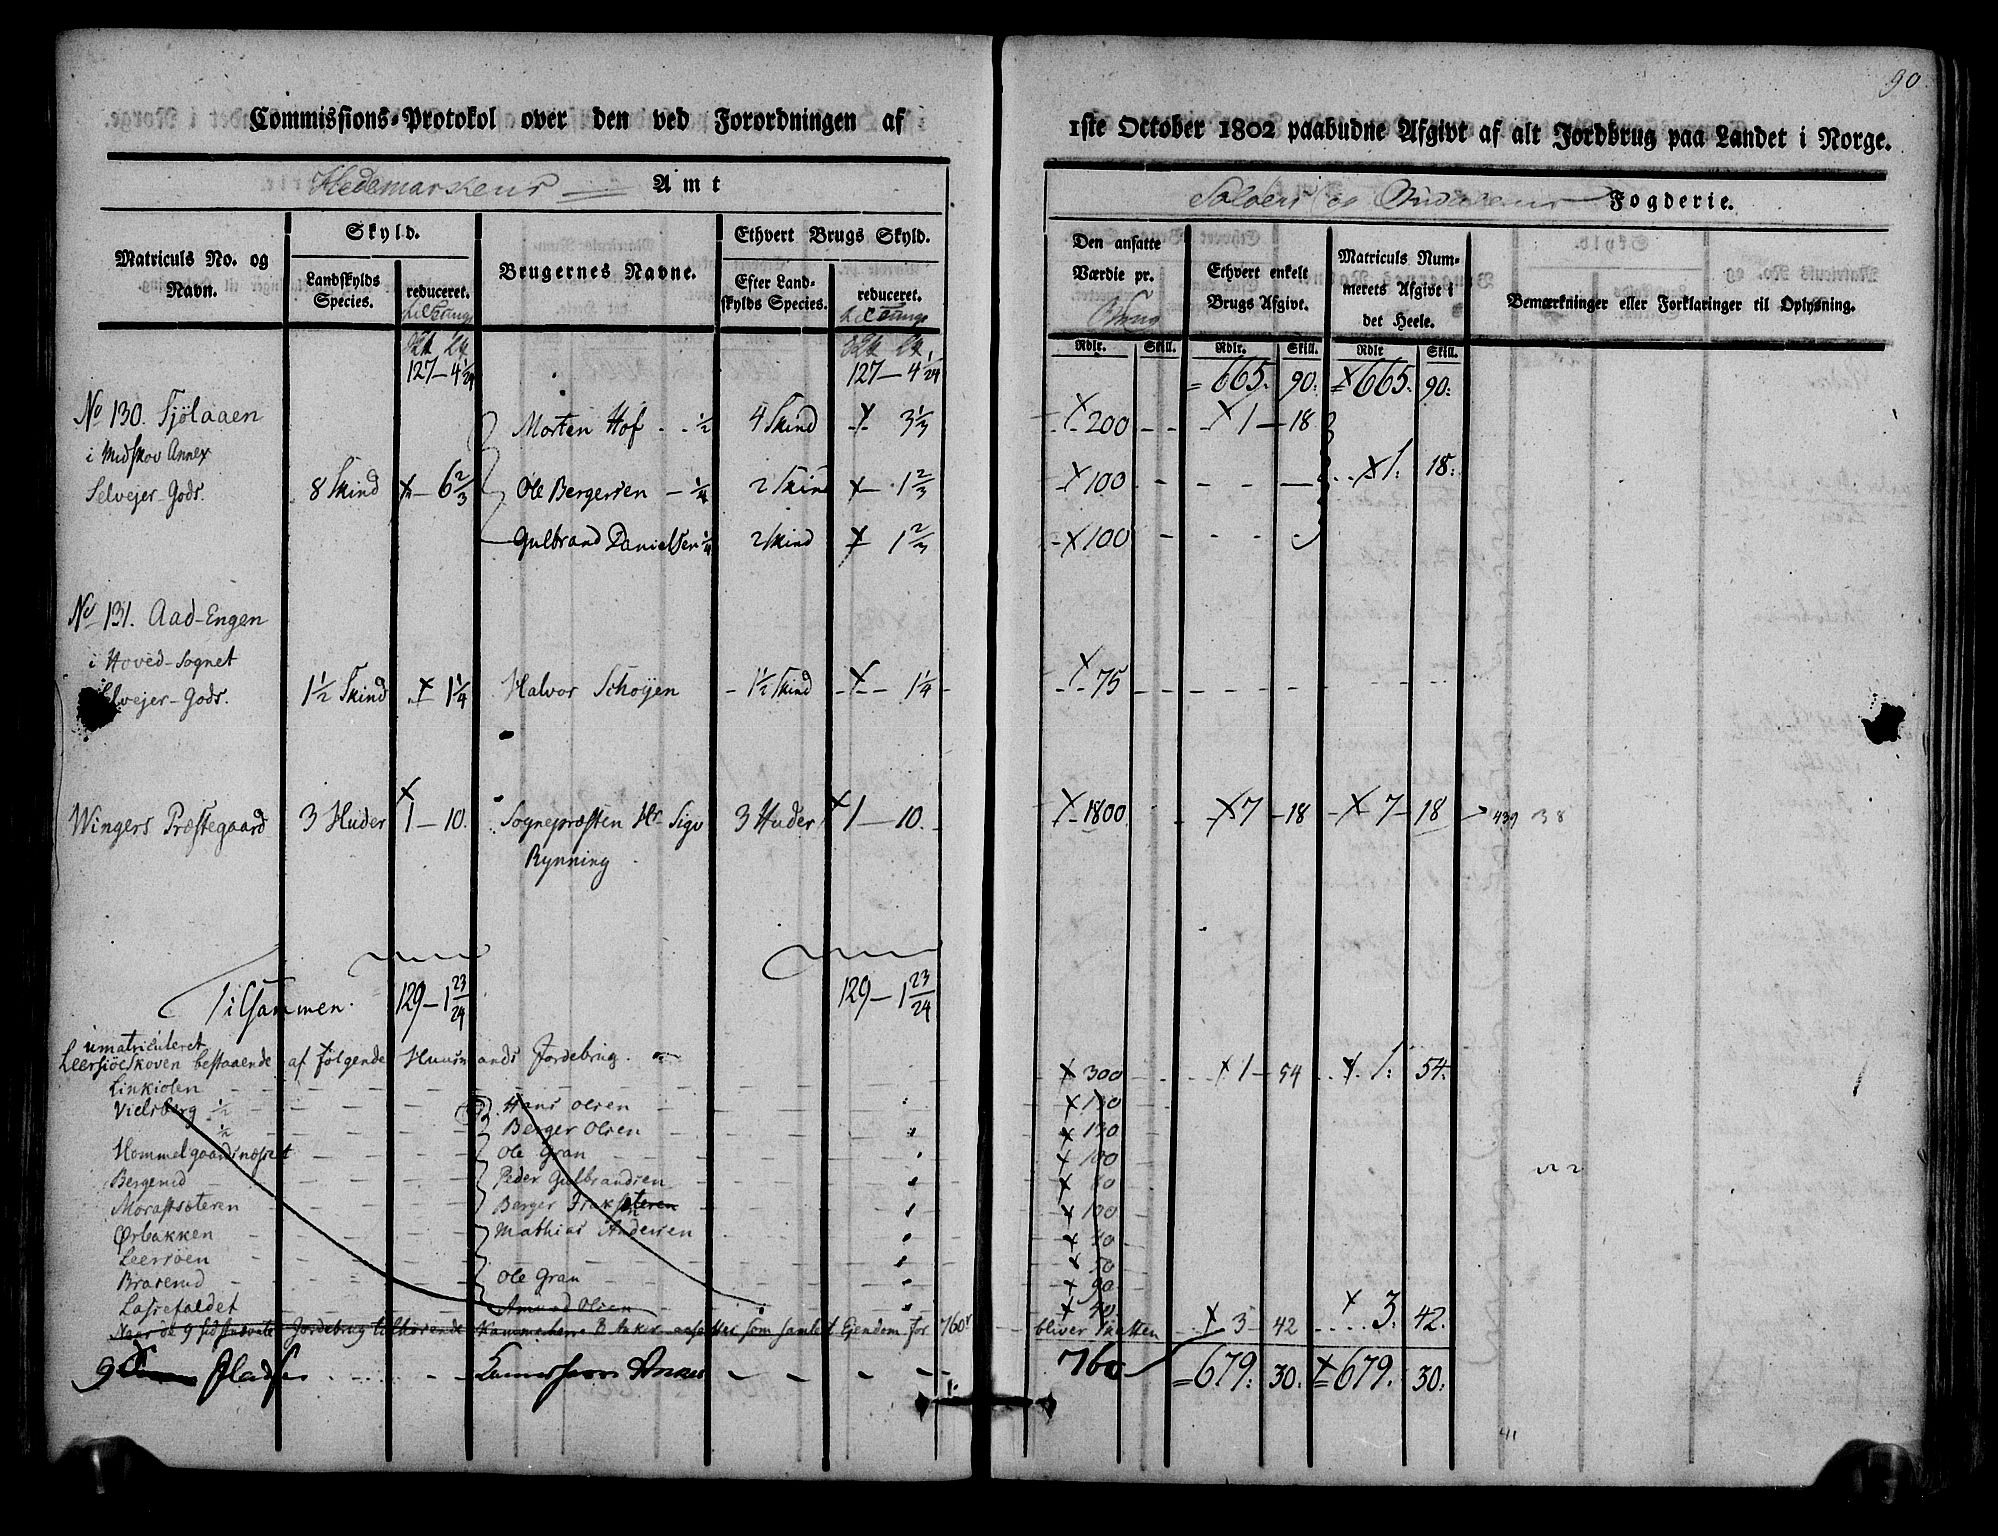 90
Commissions-Protokol over den ved Forordningen af 1ste October 1802 paabudne Afgivt af alt Jordbrug paa Landet i Norge.
Hedemarkens Amt
Fogderie.
Matriculs No. og Navn.
Skyld.
Landskylds Species.
reduceret.
Brugernes Navne.
Ethvert Brugs Skyld.
Efter Landskylds Species.
reduceret.
Den ansatte Værdie pr.
Ethvert enkelt Brugs Afgivt.
Matriculs Nummerets Afgivt i det Heele.
Bemærkninger eller Forklaringer til Oplysning.
Rdlr. Skill. Rdlr. Skill. Rdlr Skill.
127 — 4 1/24 127 — 4 1/24 = 665. 90. = 665. 90.
No 130. Fjölaaen Morten Hof - - 1/2 4 Skind 3 1/3 200 1 — 18
i Midskov Annex
Selvejer-Gods. 8 Skind 6 2/3 Ole Bergersen - 1/4 2 Skind 1 2/3 100 1. 18.
Gulbrand Danielsen 1/4 2 Skind 1 2/3 100
No 131. Aad-Engen
i Hoved-Sognet
Selvejer-Gods. 1 1/2 Skind 1 1/4 Halvor Schöyen 1 1/2 Skind 1 1/4 75
Wingers Præstegaard 3 Huder 1 — 10. Sognepræsten Hr. Sigv 3 Huder 1 — 10. 1800 7 18 7 18 439 38
Rynning
Tilsammen. 129 — 1 23/24 129 — 1 23/24
umatriculeret
Leersiöe Skoven bestaaende af følgende Huusmands Jordebrug. 300 1 — 54 1. 54.
Linkiolen
Vielsberg 1/2 Hans Olsen
1/2 Berger Olsen
Hommelgaardsnæsset Ole Gran 100
Bergerud Peder Gulbrandsen
Morastsæteren Berger 100
Ørbakken Mathias Andersen
Leersöen
Braserud Ole Gran 90
Lassefaldet Amund Olsen 40.
Naar de 9 sidstnævnte Jordebrug tilhørende Kammerherre B Anker ansættes som samlet Ejendom for 760r bliver Skatten 3 — 42 3. 42.
9 Pladser Kammerherre Anker 760 = 679. 30. = 679. 30.
41